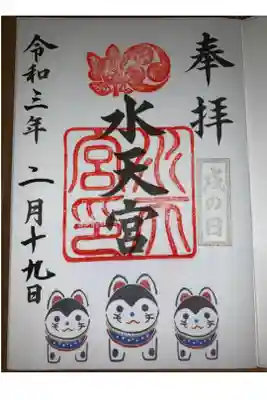 奉拝
戌の日
水天宮
水天宮印
令和三年 二月十九日